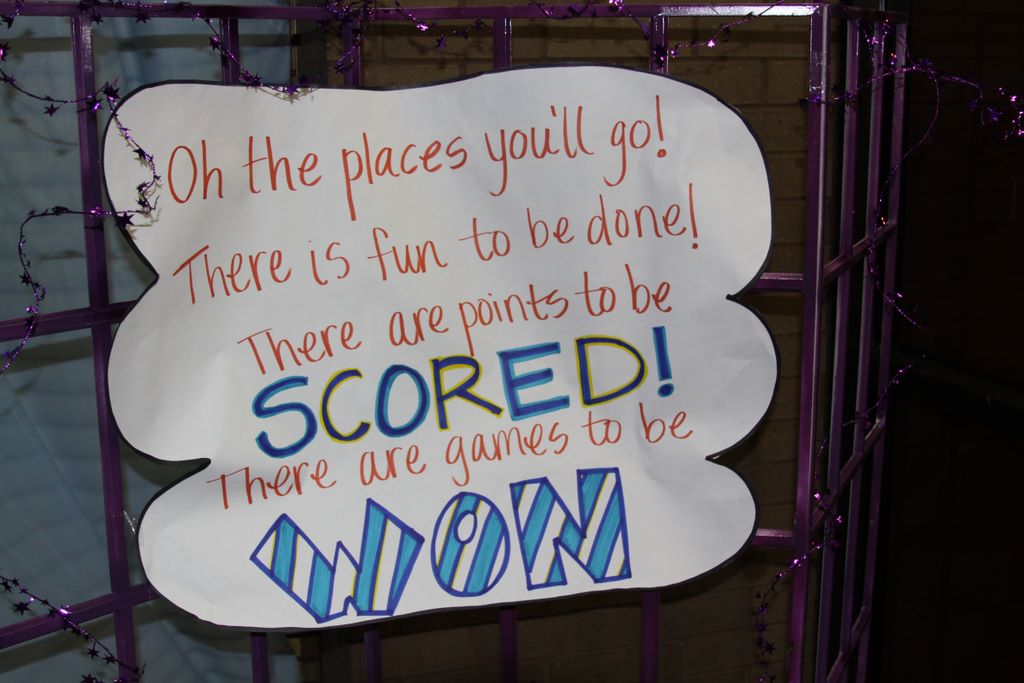 Oh the places you'll go!
There is fun to be done!
There are points to be
SCORED!
There are games to be
WON